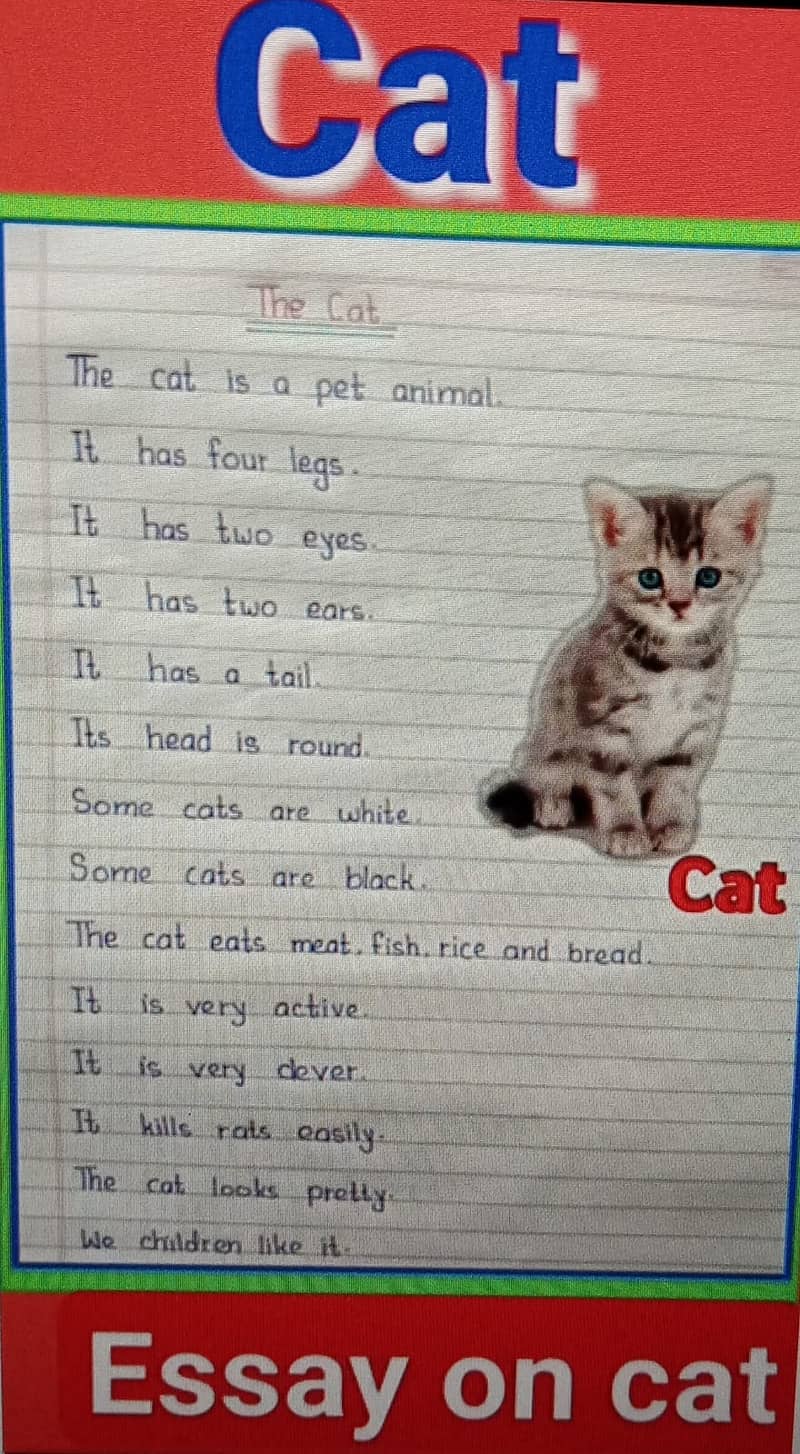 Cat
The Cat
The cat is a pet animal.
It has four legs.
It has two eyes.
It has two ears.
It has a tail.
Its head is round.
Some cats are white.
Some cats are black.
Cat
The cat eats meat, fish, rice and bread.
It is very active.
It is very clever.
It kills rats easily.
The cat looks pretty.
We children like it.
Essay on cat